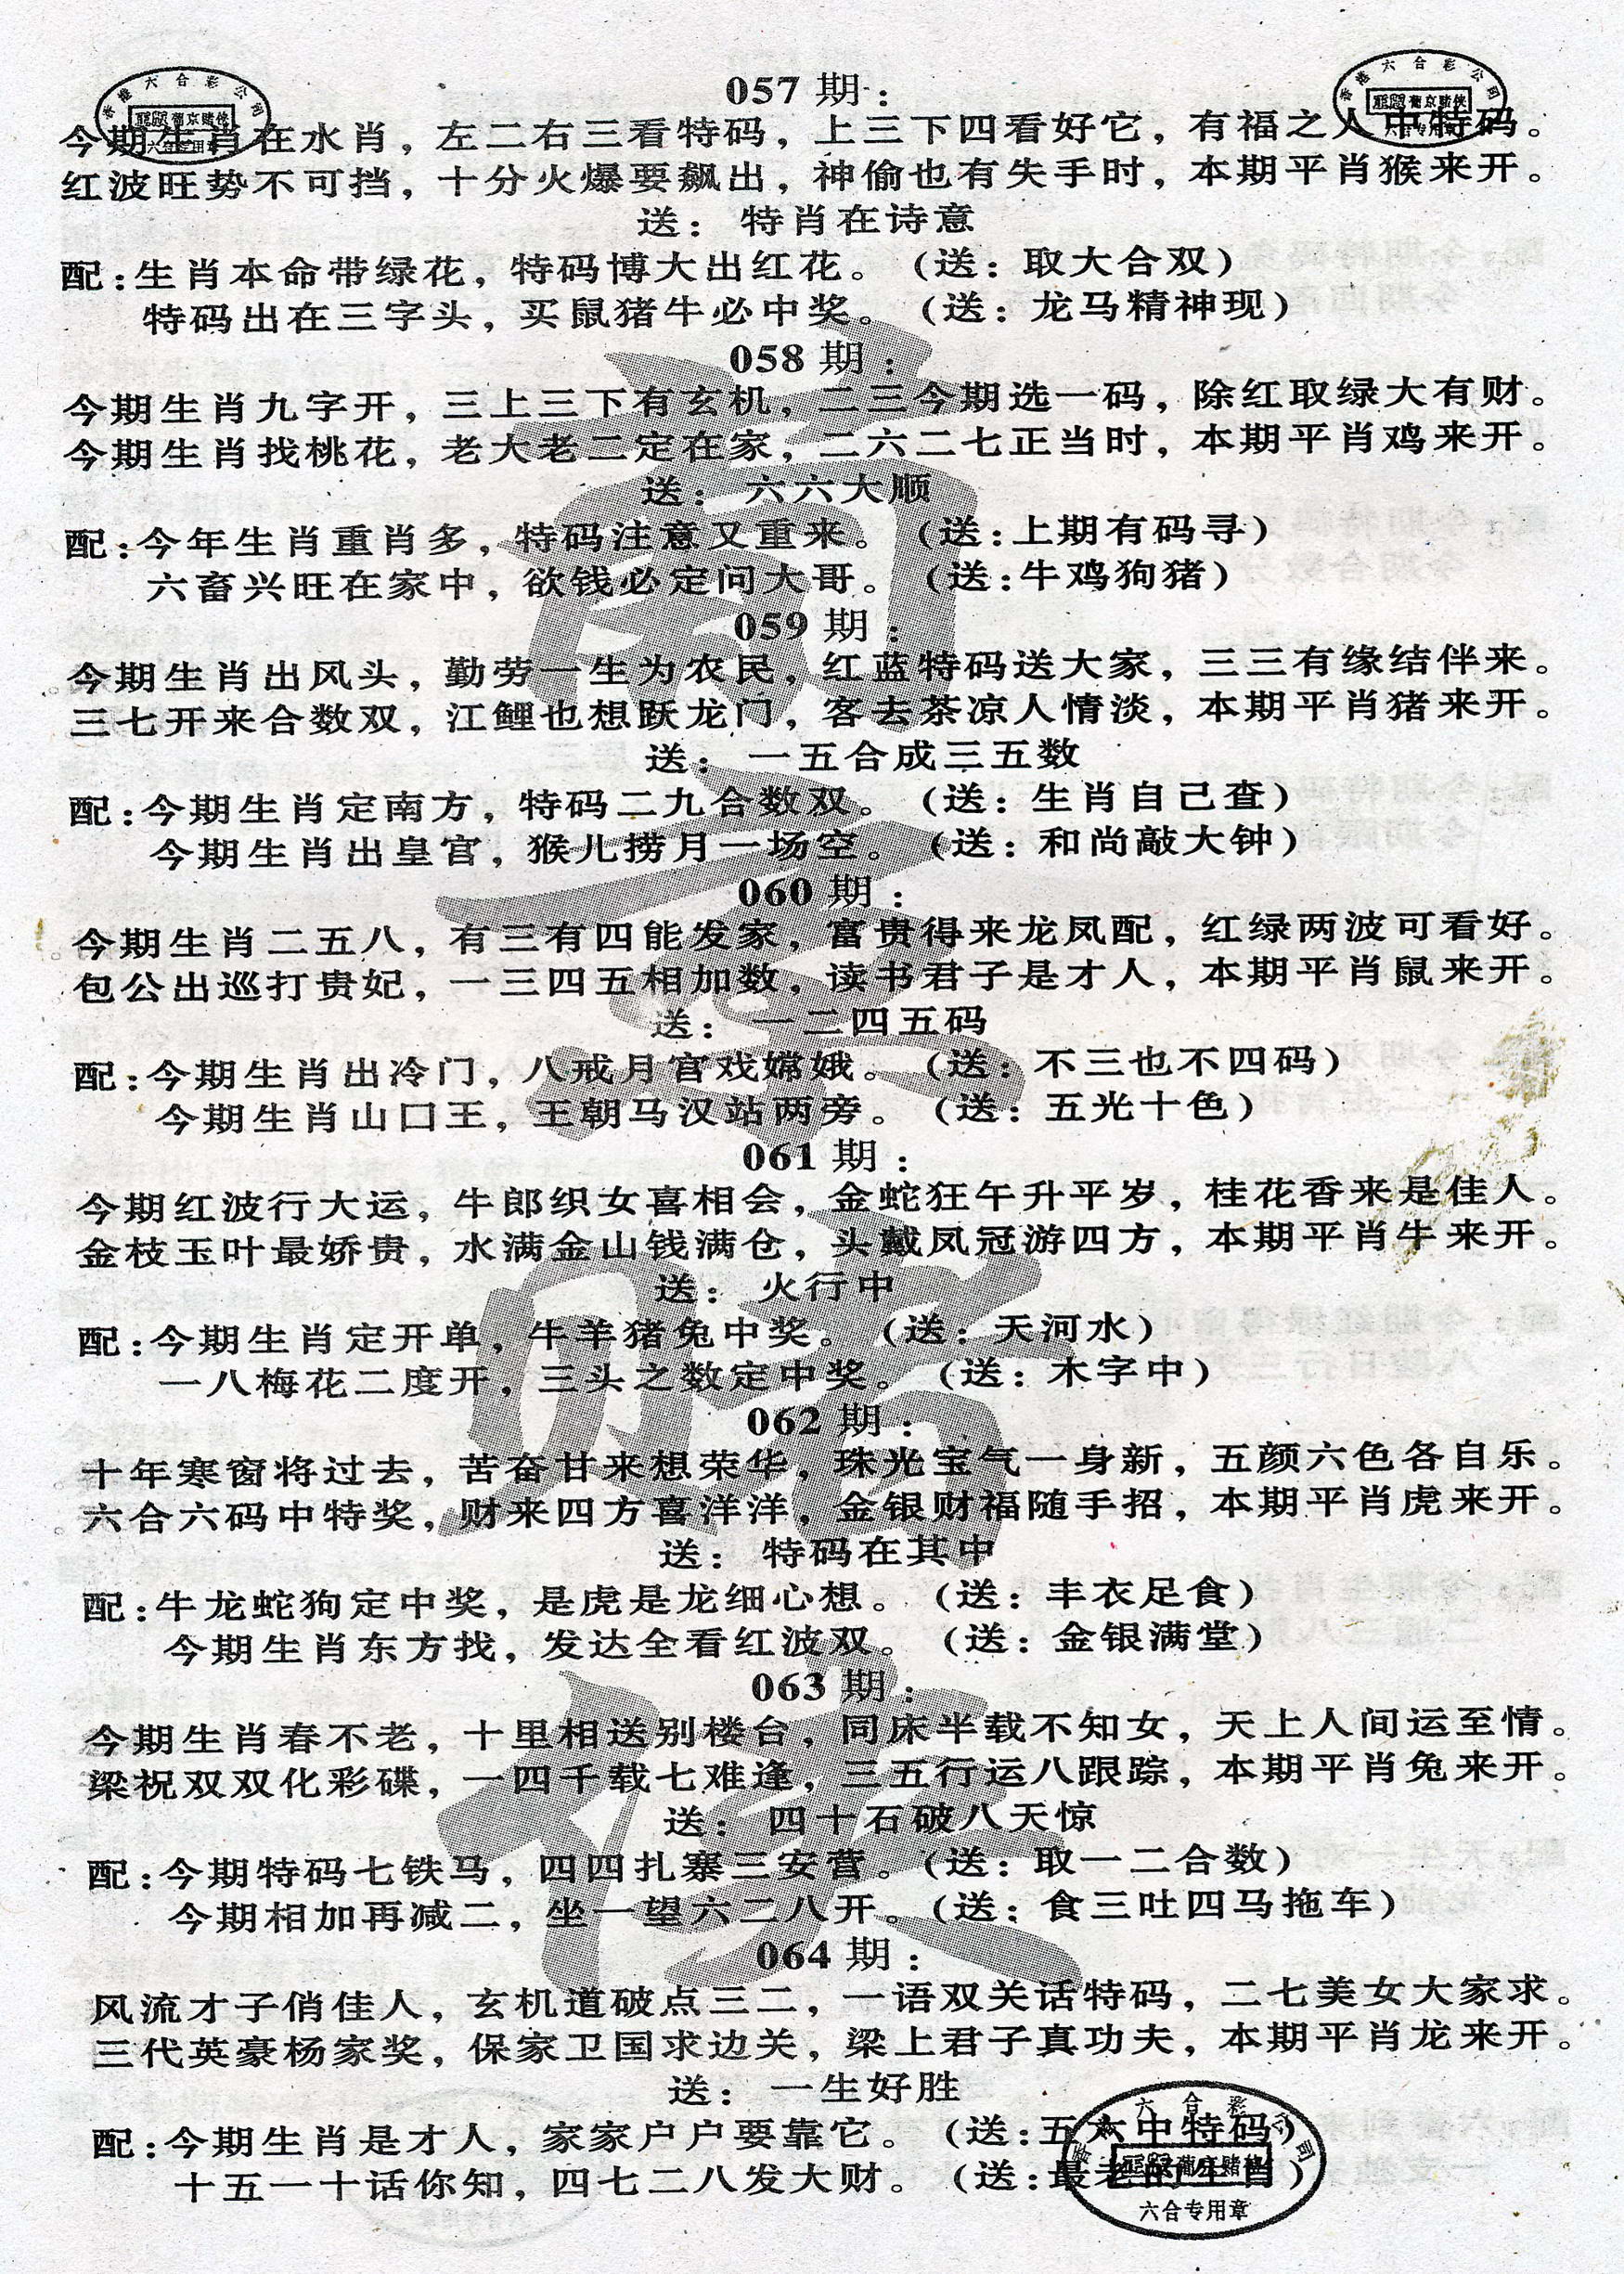 057 期：
今期生肖在水肖，左二右三看特码，上三下四看好它，有福之人中特码。
红波旺势不可挡，十分火爆要飙出，神偷也有失手时，本期平肖猴来开。
送：特肖在诗意
配：生肖本命带绿花，特码博大出红花。（送：取大合双）
特码出在三字头，买鼠猪牛必中奖。（送：龙马精神现）
058 期：
今期生肖九字开，三上三下有玄机，二三今期选一码，除红取绿大有财。
今期生肖找桃花，老大老二定在家，二六二七正当时，本期平肖鸡来开。
送：六六大顺
配：今年生肖重肖多，特码注意又重来。（送：上期有码寻）
六畜兴旺在家中，欲钱必定问大哥。（送：牛鸡狗猪）
059 期：
今期生肖出风头，勤劳一生为农民，红蓝特码送大家，三三有缘结伴来。
三七开来合数双，江鲤也想跃龙门，客去茶凉人情淡，本期平肖猪来开。
送：一五合成三五数
配：今期生肖定南方，特码二九合数双。（送：生肖自己查）
今期生肖出皇官，猴儿捞月一场空。（送：和尚敲大钟）
060 期：
今期生肖二五八，有三有四能发家，富贵得来龙凤配，红绿两波可看好。
包公出巡打贵妃，一三四五相加数，读书君子是才人，本期平肖鼠来开。
送：一二四五码
配：今期生肖出冷门，八戒月宫戏嫦娥。（送：不三也不四码）
今期生肖山口王，王朝马汉站两旁。（送：五光十色）
061 期：
今期红波行大运，牛郎织女喜相会，金蛇狂午升平岁，桂花香来是佳人。
金枝玉叶最娇贵，水满金山钱满仓，头戴凤冠游四方，本期平肖牛来开。
送：火行中
配：今期生肖定开单，牛羊猪兔中奖。（送：天河水）
一八梅花二度开，三头之数定中奖。（送：木字中）
062 期：
十年寒窗将过去，苦奋甘来想荣华，珠光宝气一身新，五颜六色各自乐。
六合六码中特奖，财来四方喜洋洋，金银财福随手招，本期平肖虎来开。
送：特码在其中
配：牛龙蛇狗定中奖，是虎是龙细心想。（送：丰衣足食）
今期生肖东方找，发达全看红波双。（送：金银满堂）
063 期：
今期生肖春不老，十里相送别楼台，同床半载不知女，天上人间运至情。
梁祝双双化彩碟，一四千载七难逢，三五行运八跟踪，本期平肖兔来开。
送：四十石破八天惊
配：今期特码七铁马，四四扎寨三安营。（送：取一二合数）
今期相加再减二，坐一望六二八开。（送：食三吐四马拖车）
064 期：
风流才子俏佳人，玄机道破点三二，一语双关话特码，二七美女大家求。
三代英豪杨家奖，保家卫国求边关，梁上君子真功夫，本期平肖龙来开。
送：一生好胜
配：今期生肖是才人，家家户户要靠它。（送：五六中特码）
十五一十话你知，四七二八发大财。（送：最老的生肖）
六合专用章